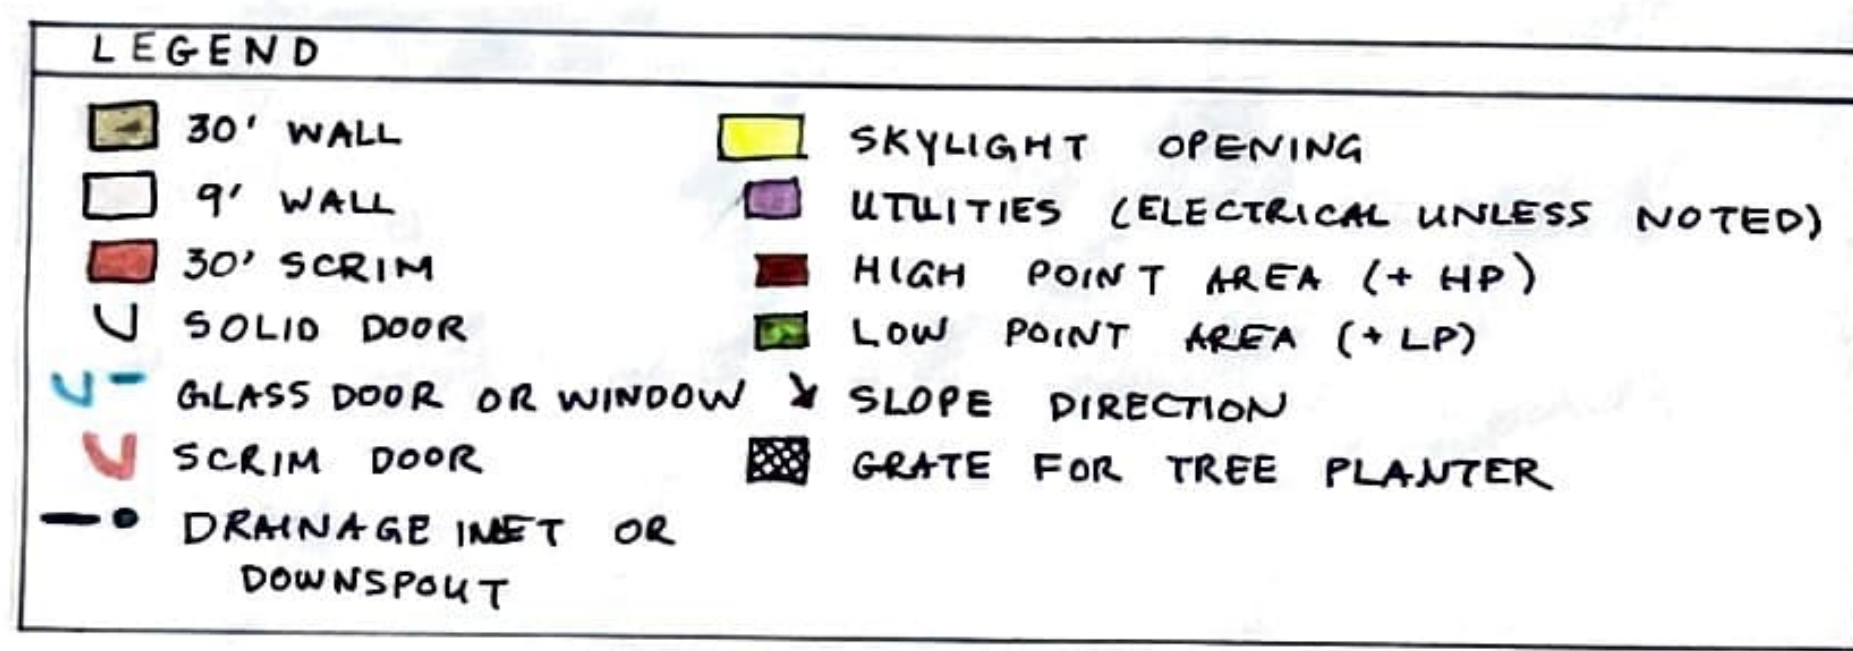 LEGEND
30' WALL
9' WALL
30' SCRIM
SOLID DOOR
GLASS DOOR OR WINDOW
SCRIM DOOR
DRAINAGE INLET OR
DOWNSPOUT
SKYLIGHT OPENING
UTILITIES (ELECTRICAL UNLESS NOTED)
HIGH POINT AREA (+ HP)
LOW POINT AREA (+ LP)
SLOPE DIRECTION
GRATE FOR TREE PLANTER